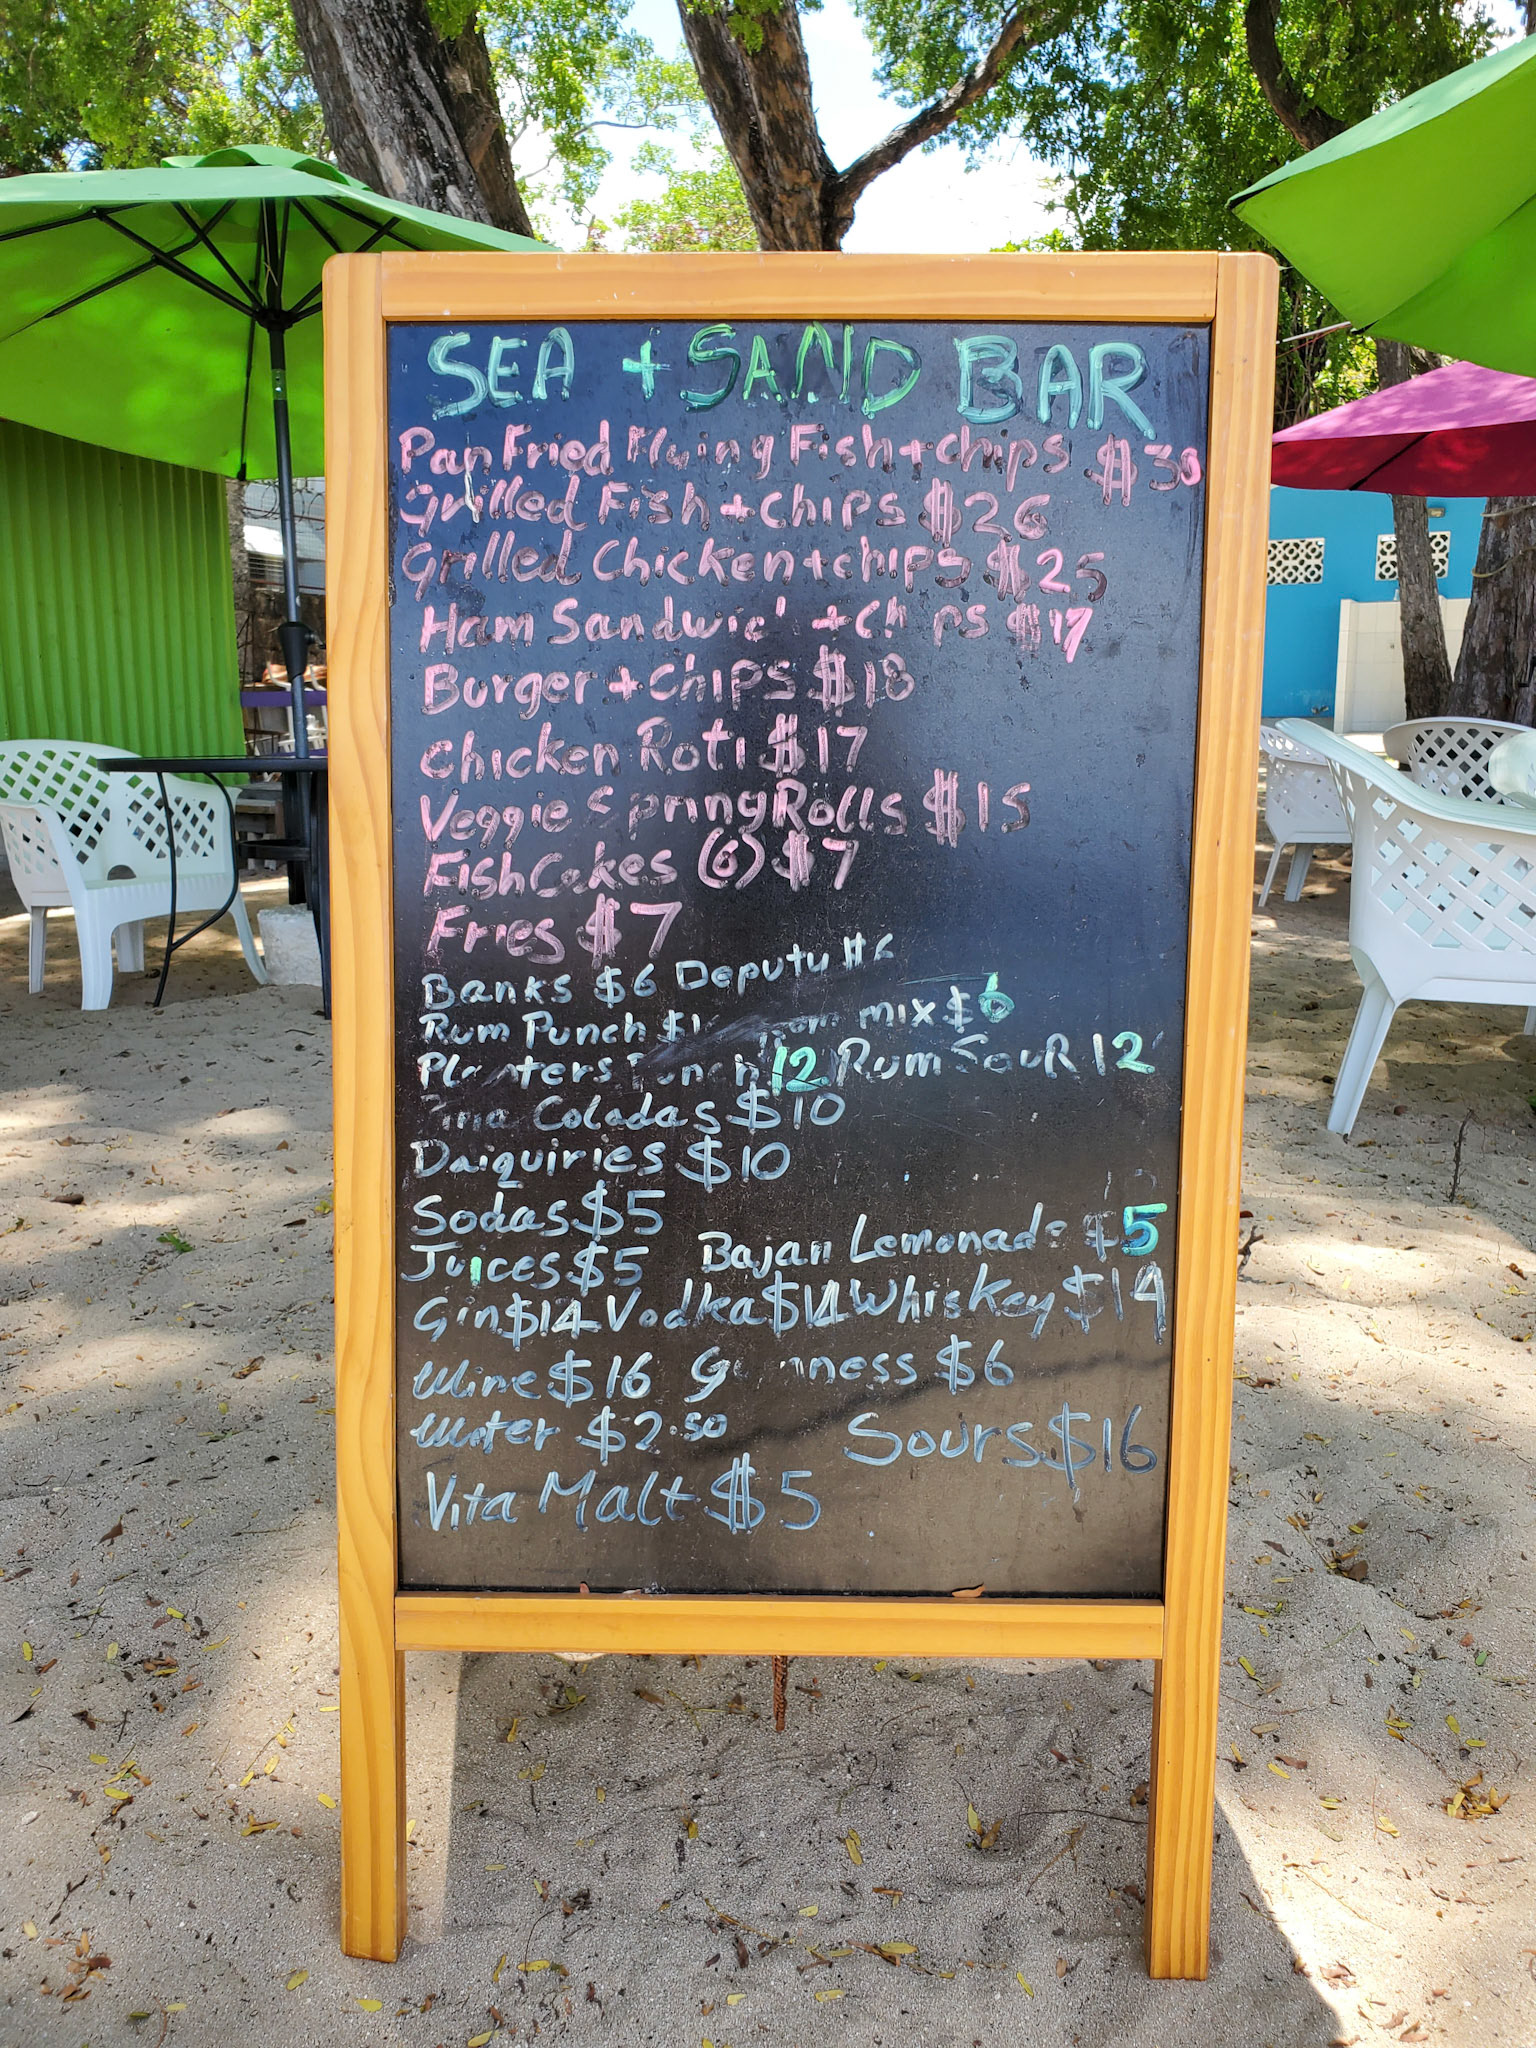 SEA + SAND BAR
Pan Fried Flying Fish + chips $30
Grilled Fish + chips $26
Grilled Chicken + chips $25
Ham Sandwic + Ch ps $17
Burger + chips $18
Chicken Roti $17
Veggie Spring Rolls $15
Fish Cakes (6) $7
Fries $7
Banks $6 Deputy $6
Rum Punch mix $6
Planters Punch 12 Rum Sour 12
Pina Coladas $10
Daiquiries $10
Sodas $5
Juices $5 Bajan Lemonade $5
Gin $14 Vodka $14 Whiskey $14
Wine $16 G nness $6
Water $2.50 Sours $16
Vita Malt $5